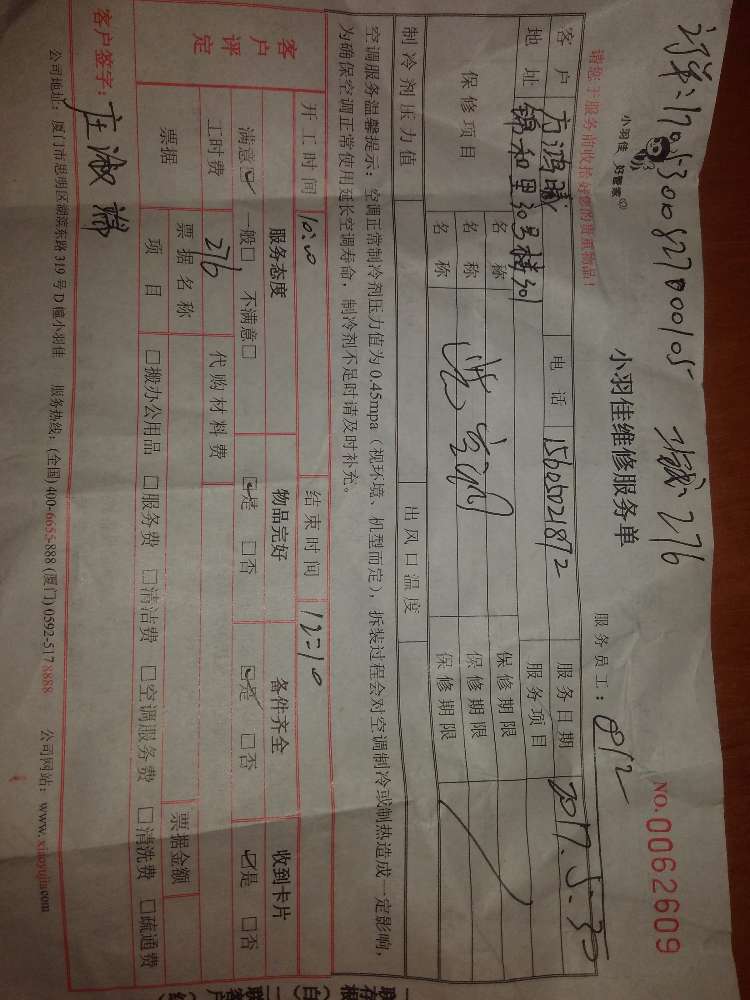 订单:170530082700105
276
小羽佳 好管家
请您于服务前收拾好您的贵重物品!
小羽佳维修服务单
服务员工: 812
NO. 0062609
客户 方鸿曦 电话 15605021872 服务日期 2017.5.30
地址 锦和里30号楼301 服务项目
保修项目 名称 保修期限
名称 洗空调 保修期限
名称 保修期限
制冷剂压力值 出风口温度
空调服务温馨提示: 空调正常制冷剂压力值为 0.45mpa (视环境、机型而定), 拆装过程会对空调制冷或制热造成一定影响,
为确保空调正常使用延长空调寿命, 制冷剂不足时请及时补充。
开工时间 10:10 结束时间 12:10
客户评定 服务态度 物品完好 备件齐全 收到卡片
满意☑ 一般□ 不满意□ ☑是 □否 ☑是 □否 ☑是 □否
工时费 276 代购材料费
票据 票据名称 票据金额
项目 □搬办公用品 □服务费 □清洁费 □空调服务费 □清洗费 □疏通费
客户签字: 庄淑端
公司地址: 厦门市思明区湖滨东路 319 号 D 幢小羽佳 服务热线: (全国) 400-6655-888 (厦门) 0592-5178888 公司网站: www.xiaoyujia.com